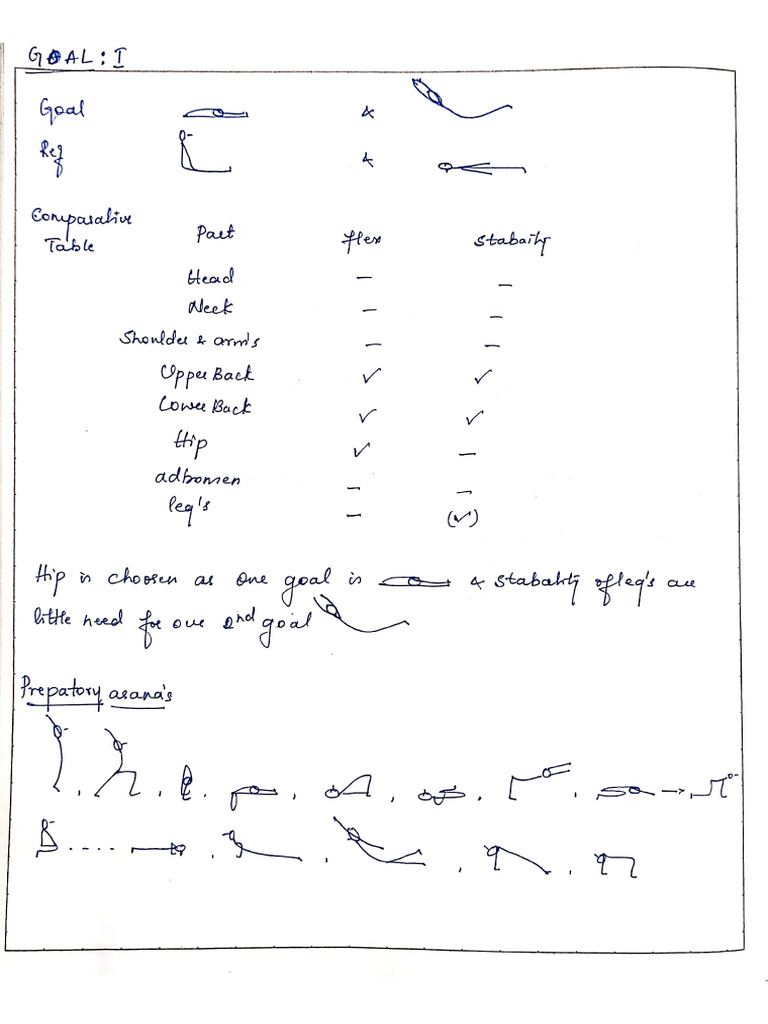 GOAL : I
Goal &
Ref &
Comparative Table Part flex Stabaity
Head – –
Neck – –
Shoulder & arm's – –
Upper Back ✓ ✓
Lower Back ✓ ✓
Hip ✓ –
adbomen – –
leg's – (✓)
Hip is choosen as one goal is & stabality of leg's are
little need for our 2nd goal
Prepatory asana's